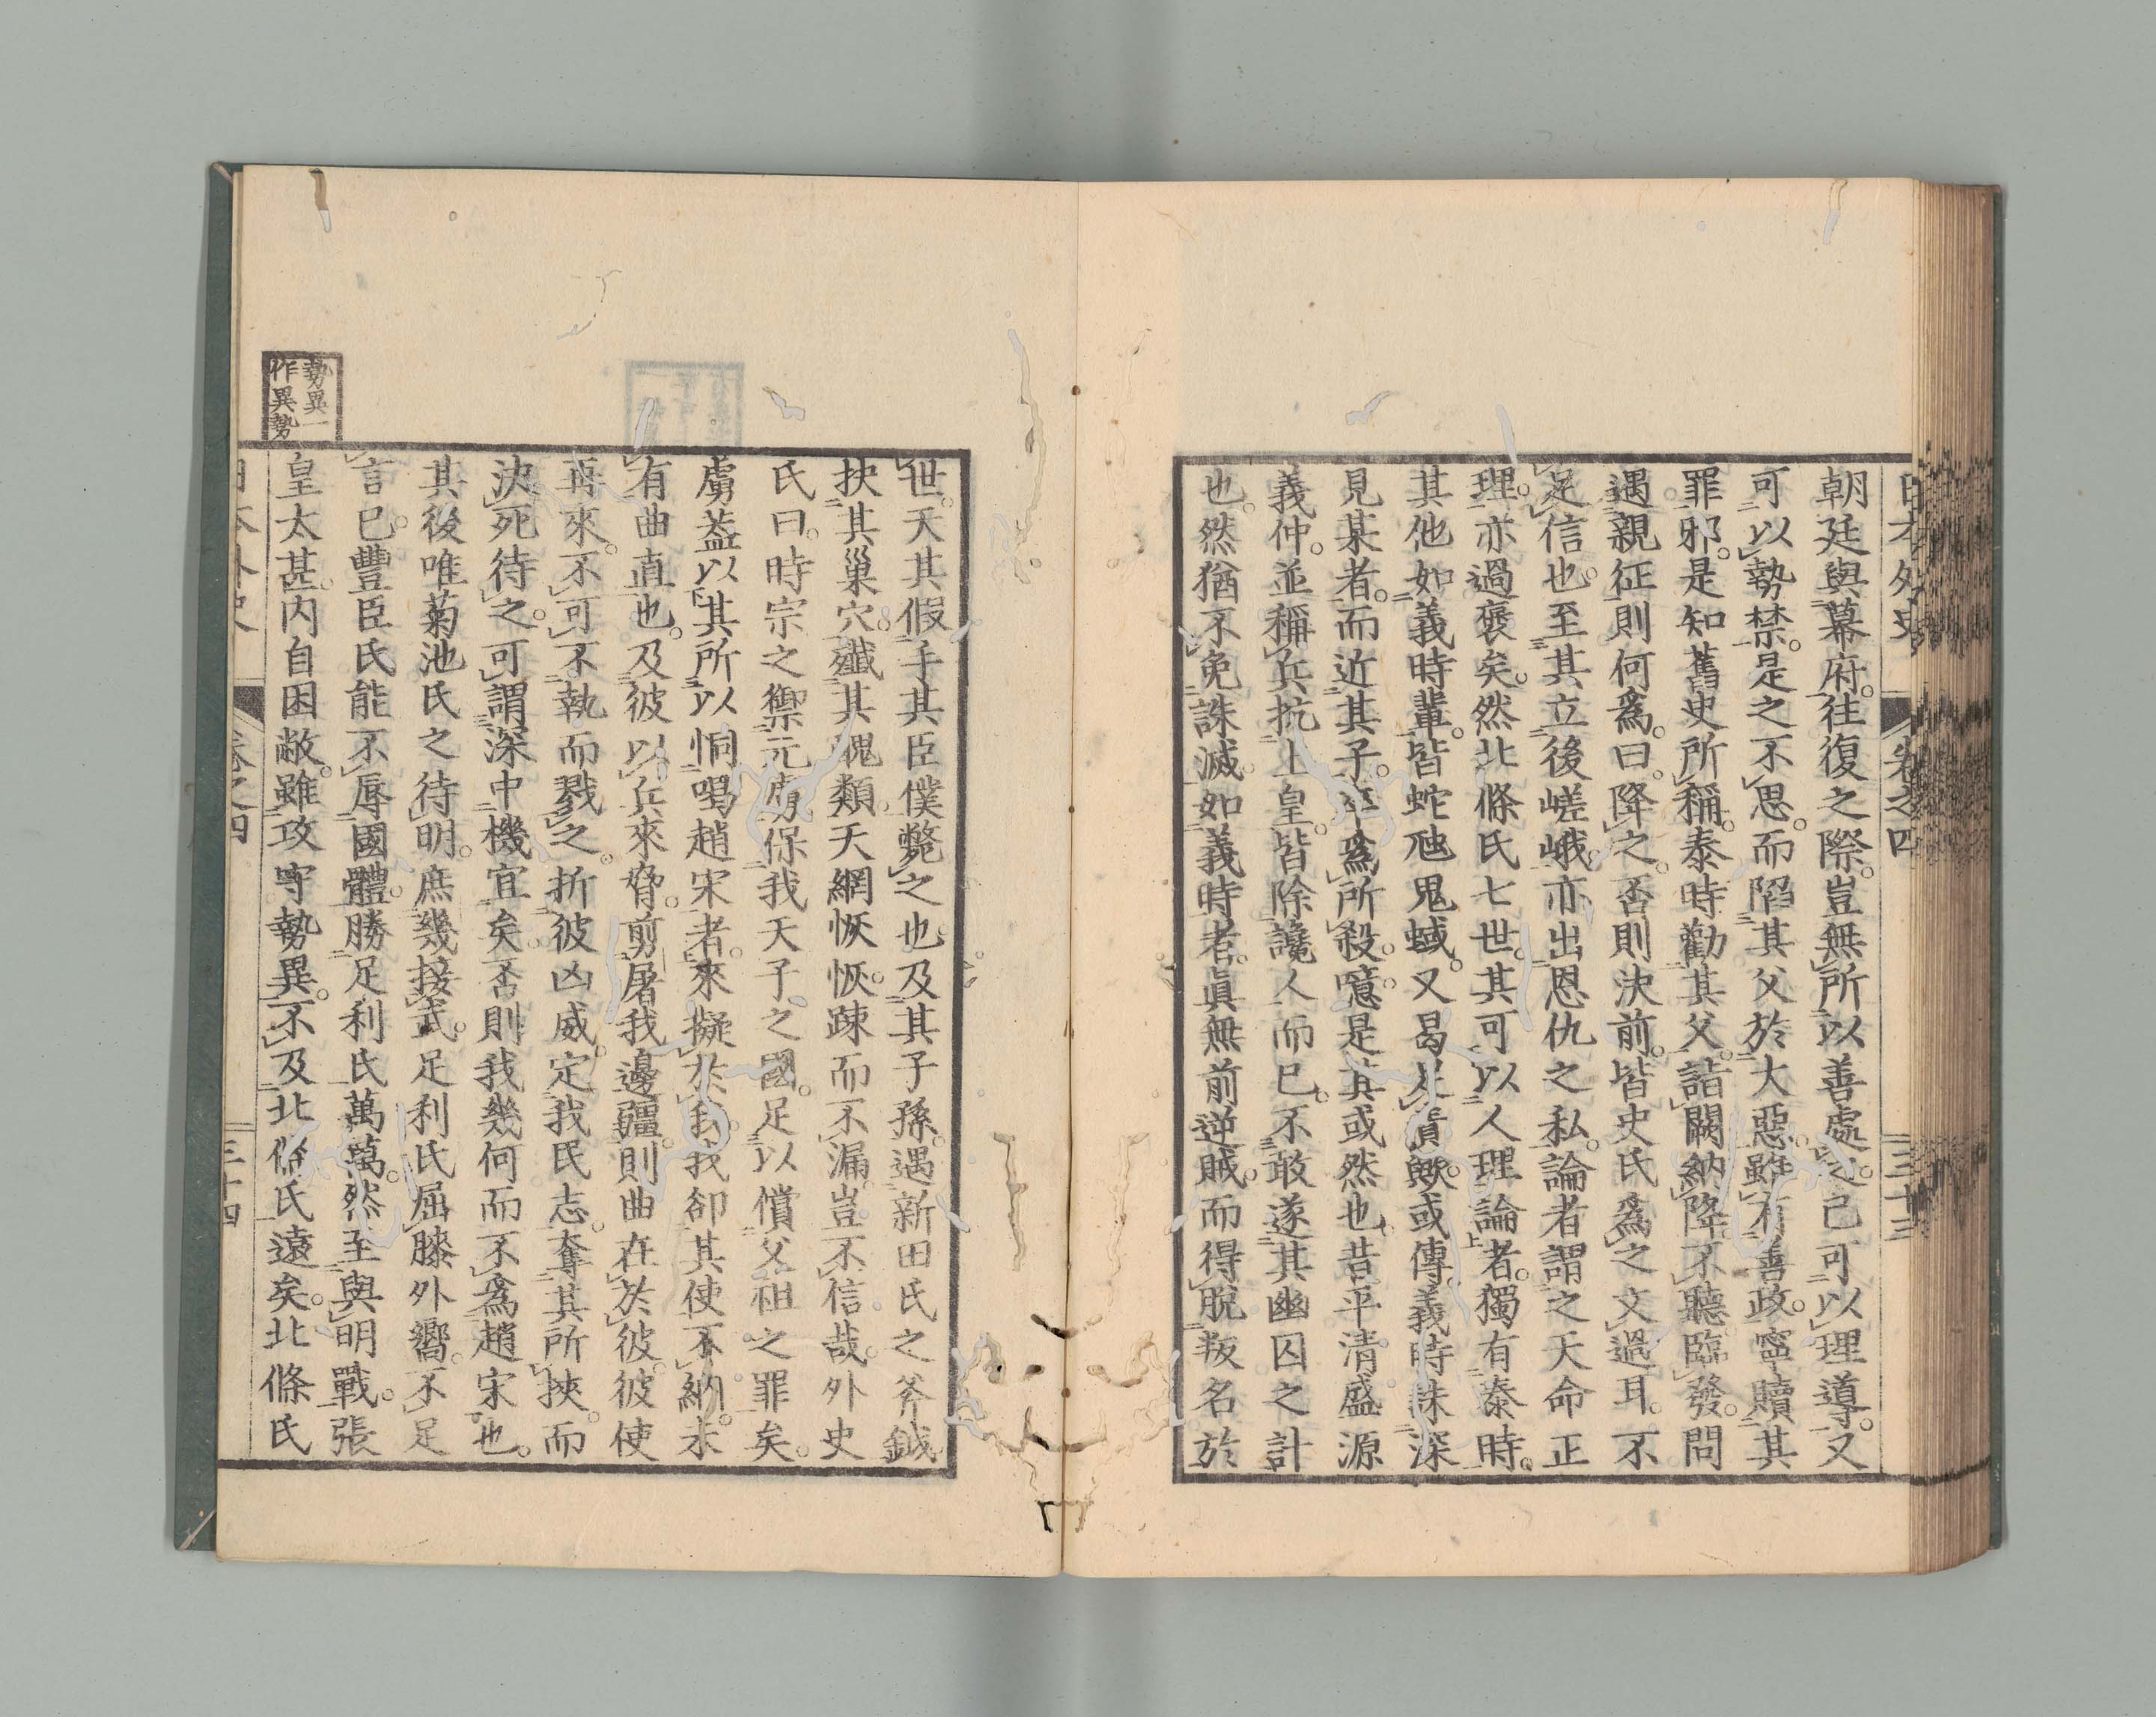 日本外史 卷之四 三十三
朝廷與幕府。往復之際。豈無所以善處之。己可以理導。又
可以勢禁。是之不思。而陷其父於大惡。雖有善政。寧贖其
罪邪。是知舊史所稱。泰時勸其父。詣闕納降。不聽。臨發。問
遇親征則何爲。曰。降之。否則決前。皆史氏爲之文過耳。不
足信也。至其立後嵯峨。亦出恩仇之私。論者謂之天命正
理。亦過褒矣。然北條氏七世。其可以人理論者。獨有泰時。
其他如義時輩。皆蛇虺鬼蜮。又曷足責歟。或傳。義時誅深
見某者。而近其子。卒爲所殺。噫是其或然也。昔平淸盛源
義仲。並稱兵抗上皇。皆除讒人而已。不敢遂其幽囚之計
也。然猶不免誅滅。如義時者。眞無前逆賊。而得脫叛名於
世。天其假手其臣僕斃之也。及其子孫。遇新田氏之斧鉞
抉其巢穴。殲其醜類。天網恢恢。疎而不漏。豈不信哉。外史
氏曰。時宗之禦元虜。保我天子之國。足以償父祖之罪矣。
虜葢以其所以恫喝趙宋者。來擬於我。我卻其使不納。未
有曲直也。及彼以兵來脅。剪屠我邊疆。則曲在於彼。彼使
再來。不可不執而戮之。折彼凶威。定我民志。奪其所挾。而
決死待之。可謂深中機宜矣。否則我幾何而不爲趙宋也。
其後唯菊池氏之待明。庶幾接武。足利氏屈膝外嚮。不足
言已。豐臣氏能不辱國體。勝足利氏萬萬。然至與明戰。張
皇太甚。内自困敝。雖攻守勢異。不及北條氏遠矣。北條氏
勢異一
作異勢
日本外史 卷之四 三十四